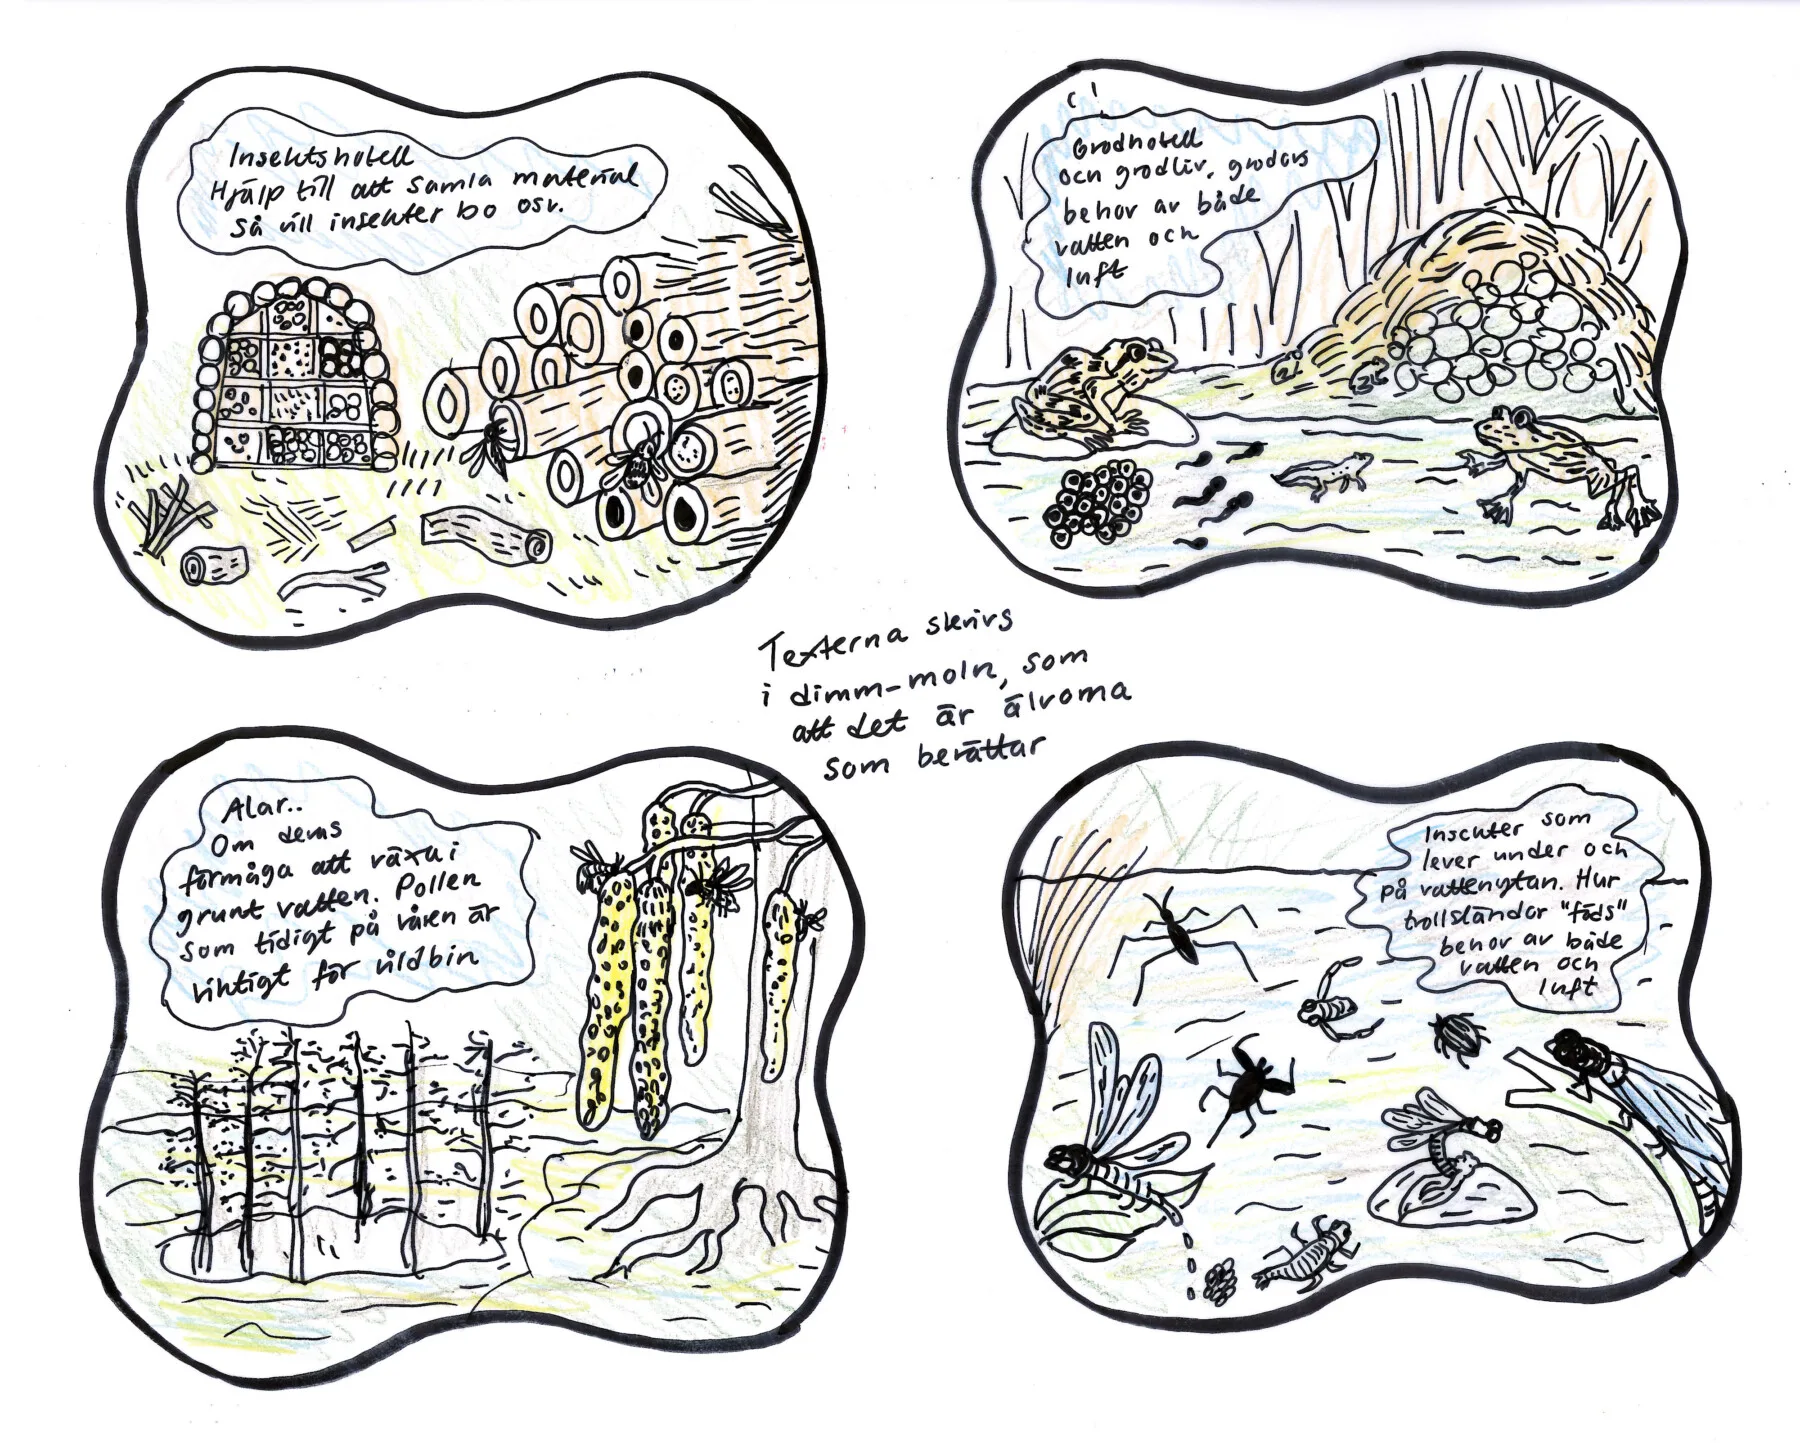 Insektshotell
Hjälp till att samla material
så vill insekter bo osv.
Grodhotell
och grodliv, grodors
behov av både
vatten och
luft
Texterna skrivs
i dimm-moln, som
att det är älvorna
som berättar
Alar..
Om deras
förmåga att växa i
grunt vatten. Pollen
som tidigt på våren är
viktigt för vildbin
Insekter som
lever under och
på vattenytan. Hur
trollsländor "föds"
behov av både
vatten och
luft